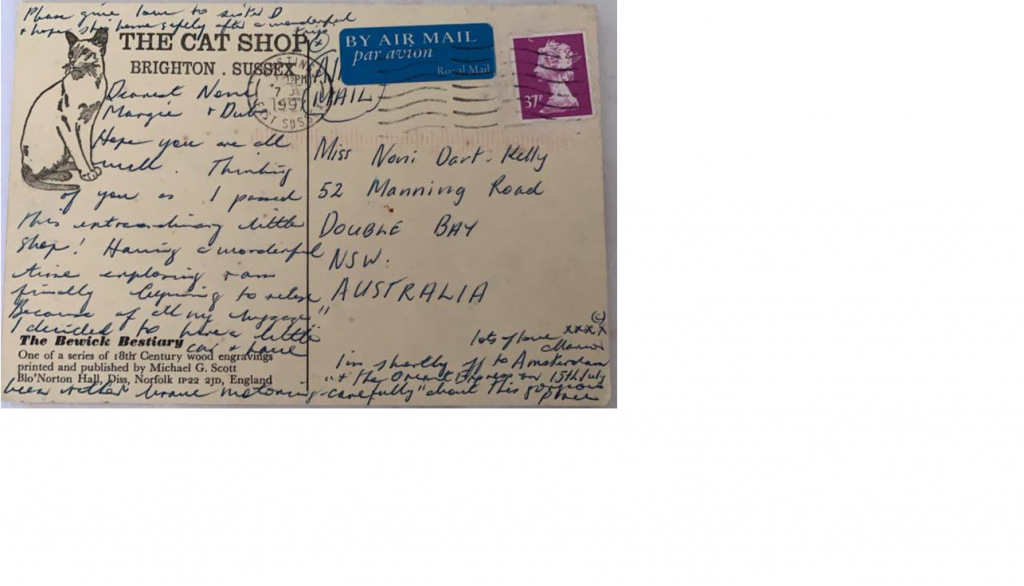 Please give love to sister D
& hope she is home safely after a wonderful
THE CAT SHOP
BRIGHTON . SUSSEX
BY AIR MAIL
par avion
Royal Mail
37P
1997
MAIL
Dearest Noni
Margie &
Hope you are all
well. Thinking
of you as I passed
this extraordinary little
shop! Having a wonderful
time exploring & am
finally beginning to relax
Because of all my "luggage"
I decided to have a little
car & have
been rather brave motoring "carefully" about this gorgeous place
The Bewick Bestiary
One of a series of 18th Century wood engravings
printed and published by Michael G. Scott
Blo'Norton Hall, Diss, Norfolk IP22 2JD, England
Miss Noni Dart-Kelly
52 Manning Road
DOUBLE BAY
NSW.
AUSTRALIA
lots of love xxxx
I'm shortly off to Amsterdam
& the Orient Express on 15th July